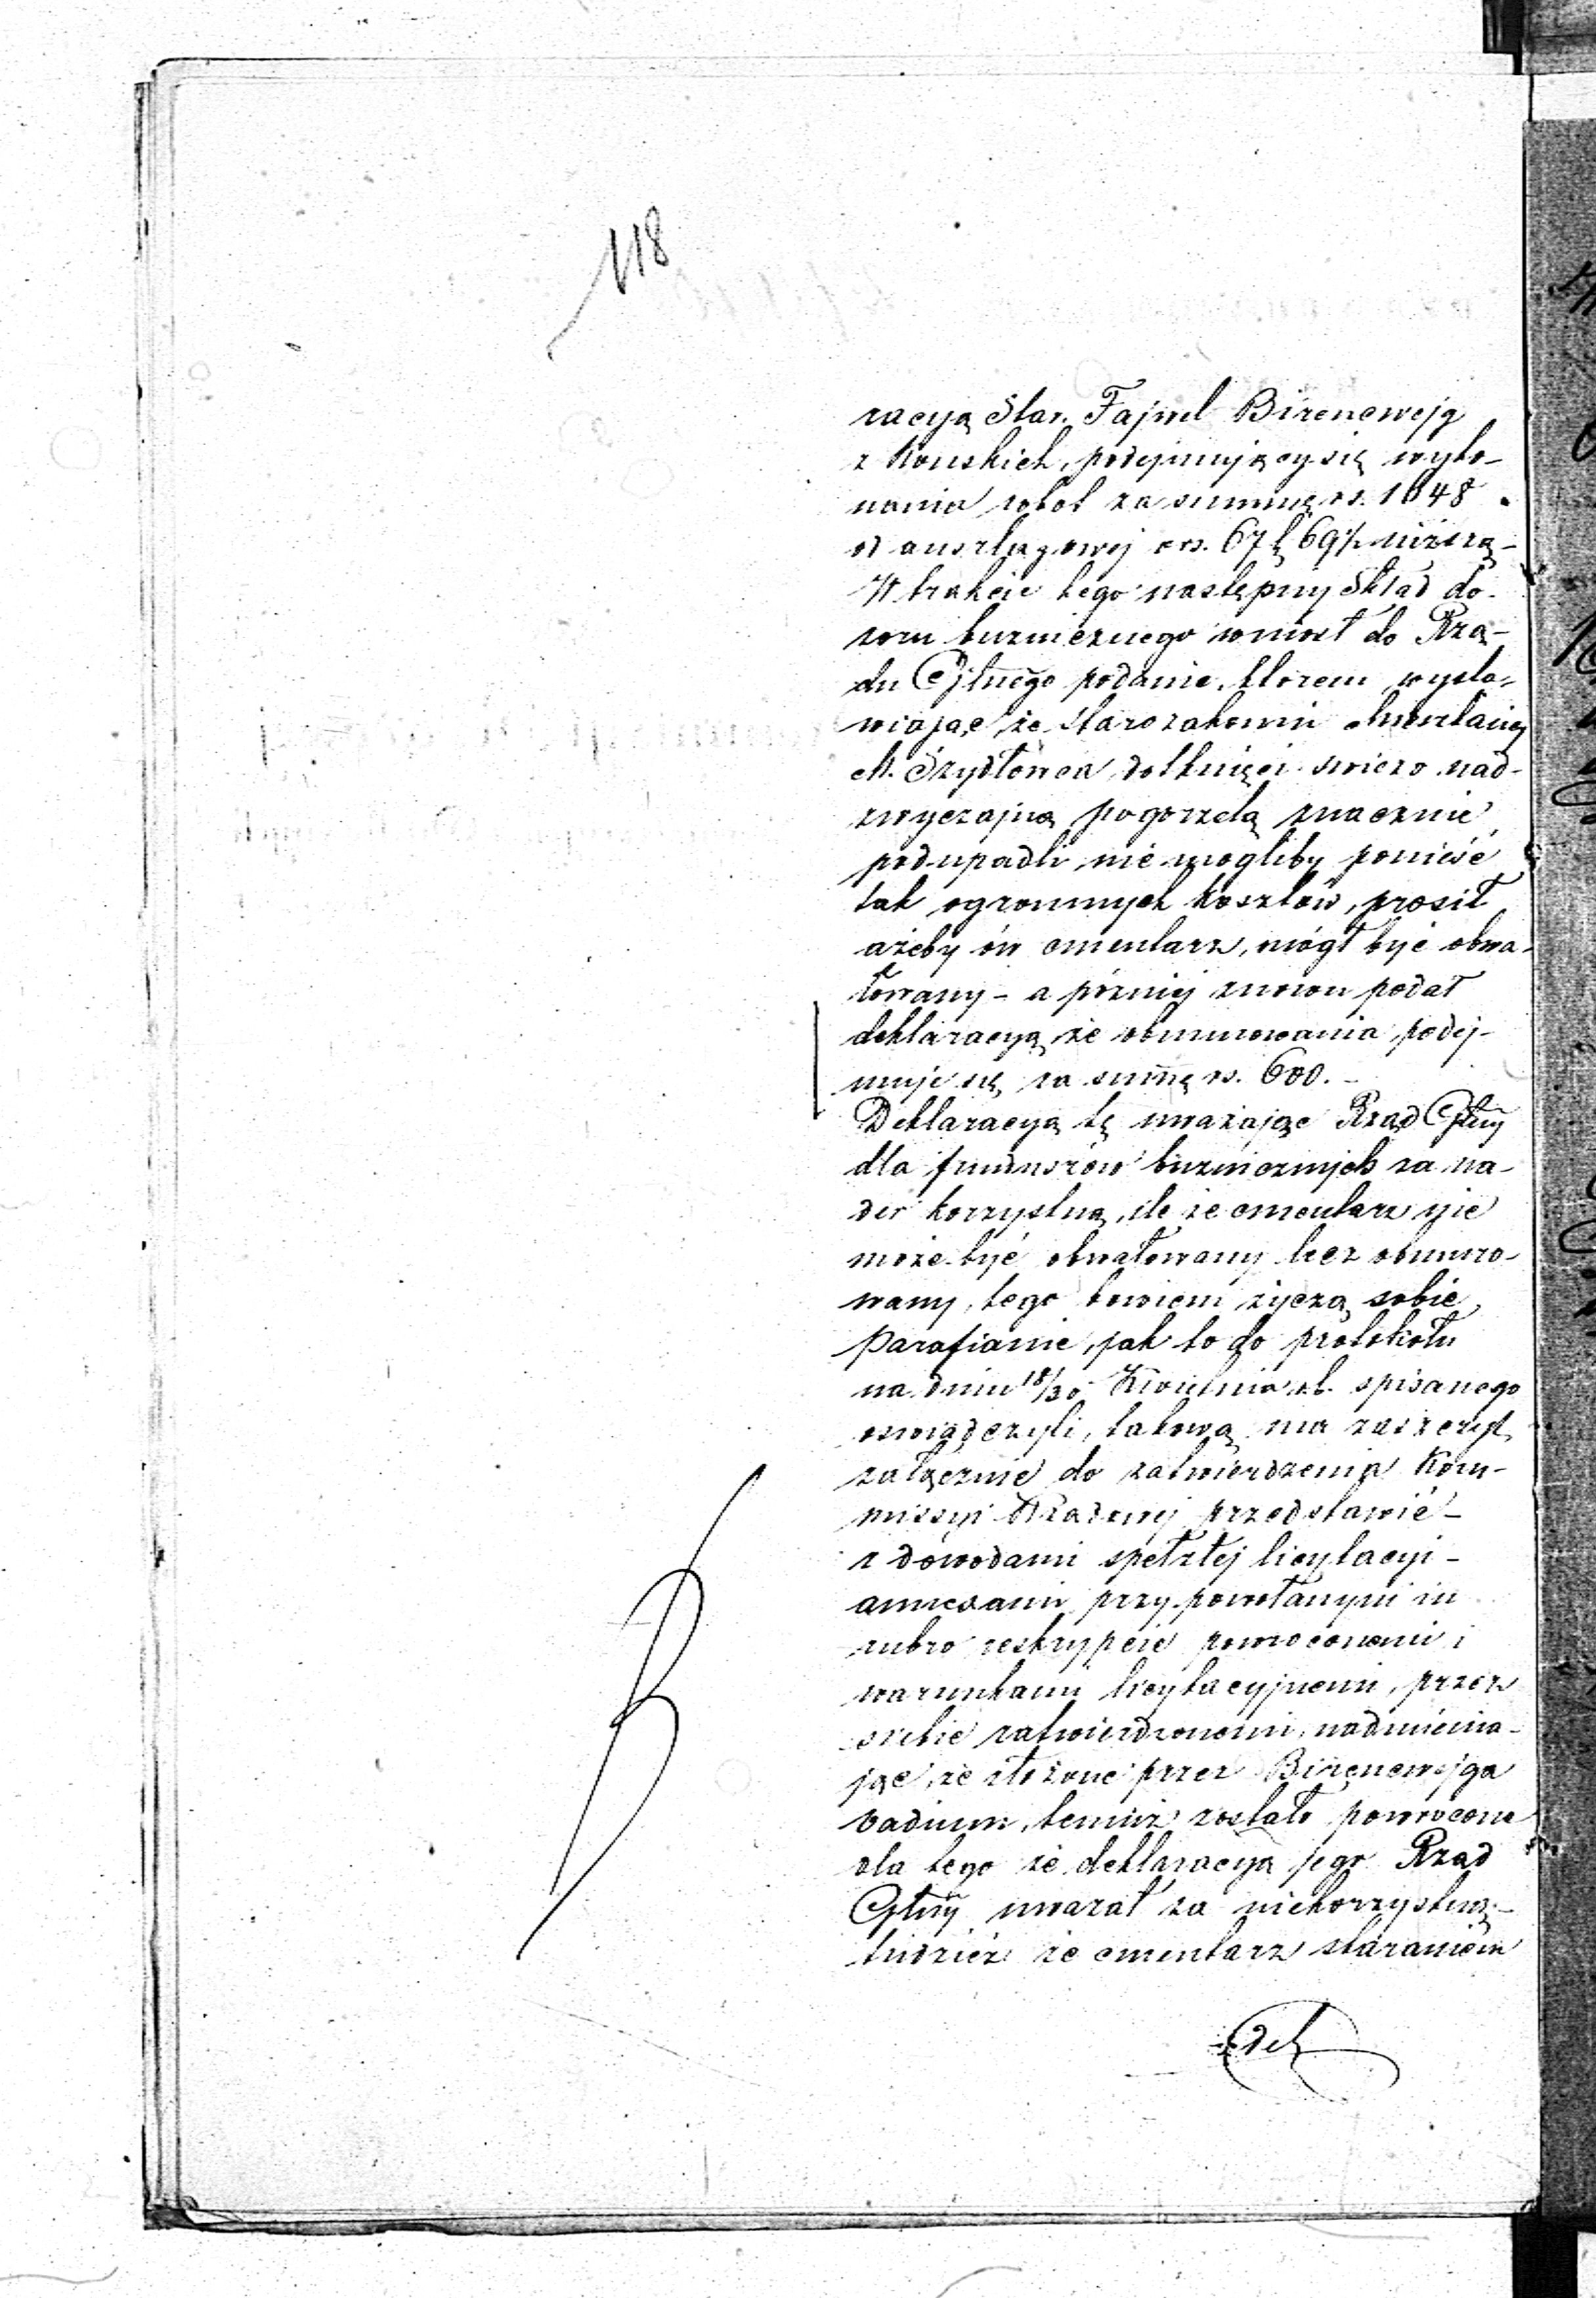 118
racyą Star. Fajwel Birencwejg
z Konskich, podejmujący się wyko-
nania robot za summę rs. 1048
od anszlagowej o rs. 67 k 69½ niższą -
W trakcie tego następny Skład do-
zoru bużniczneg​o wniosł do Rzą-
du Gjlnego podanie, ktorem wysta-
wiając, że starozakonni
M. Szydłowca dotknięci swieżo nad-
zwyczajną pogorzelą znacznie
podupadli nie mogliby ponieść
tak ogromnych kosztów, prosił
ażeby ów cmentarz, mógł być obwa-
łowany - a pózniej znowu podał
deklaracyą że obmurowania podej-
muje się za sumę rs. 600. -
Deklaracyą tę uważając Rząd Gjlny
dla funduszów bużnicznych za na-
der korzystną, ile że cmentarz nie
może być obwałowany lecz obmuro-
wany, tego bowiem życzą sobie
Parafianie, jak to do protokołu
na dniu 18/30 Kwietnia r.b. spisanego
oswiadczyli, takową ma zaszczyt
załącznie do zatwierdzenia Kom-
missyi Rządowej przedstawić -
z dowodami spełzłej licytacyi -
annexami przy powołanym in
rubro reskrypcie powroconemi i
warunkami licytacyjnemi, przez
siebie zatwierdzonemi, nadmienia-
jąc, że złożone przez Birencwejga
vadium, temuż zostało powrocone
dla tego że deklaracyą jego Rząd
Gjlny uważał za niekorzystną -
tudzież że cmentarz staraniem